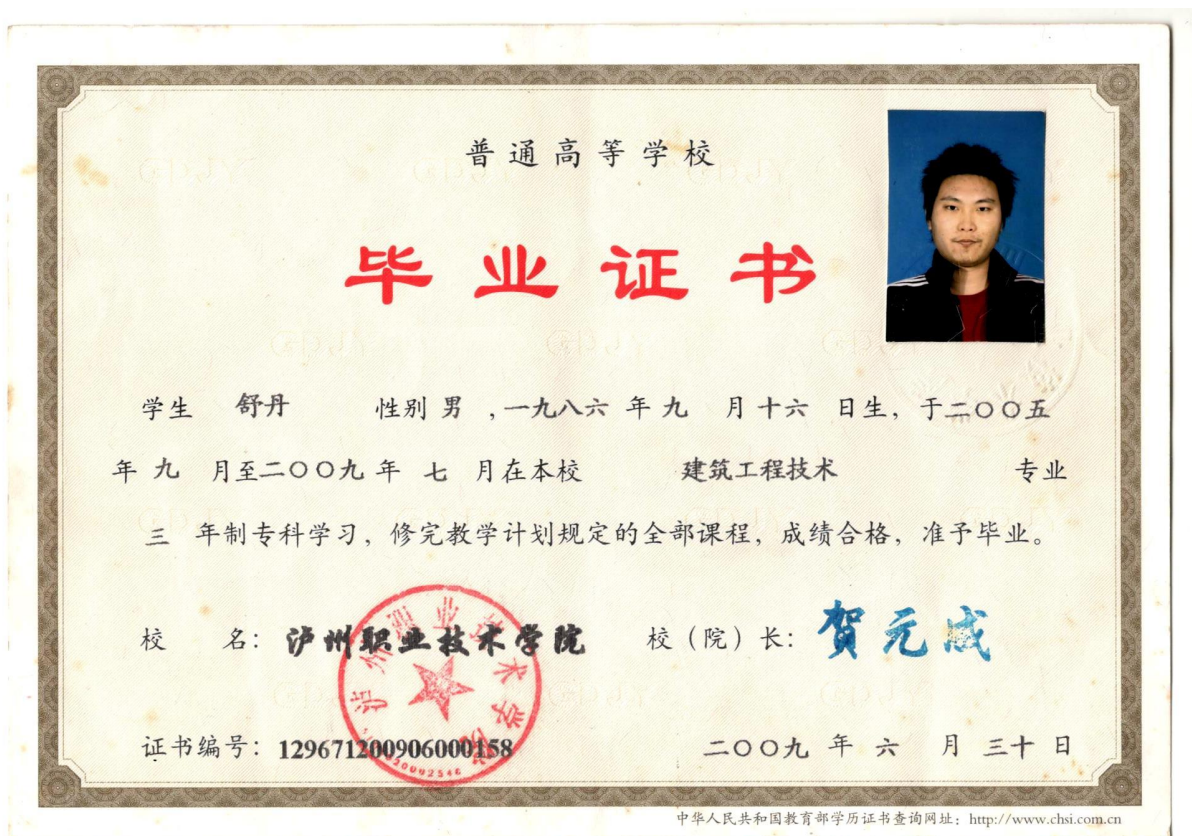 普通高等学校
毕业证书
学生 舒丹 性别 男 ，一九八六 年 九 月 十六 日生，于二〇〇五
年 九 月至二〇〇九 年 七 月在本校 建筑工程技术 专业
三 年制专科学习，修完教学计划规定的全部课程，成绩合格，准予毕业。
校 名：泸州职业技术学院 校（院）长：贺元成
泸州职业技术学院
证书编号：129671200906000158 二〇〇九 年 六 月 三十 日
中华人民共和国教育部学历证书查询网址：http://www.chsi.com.cn